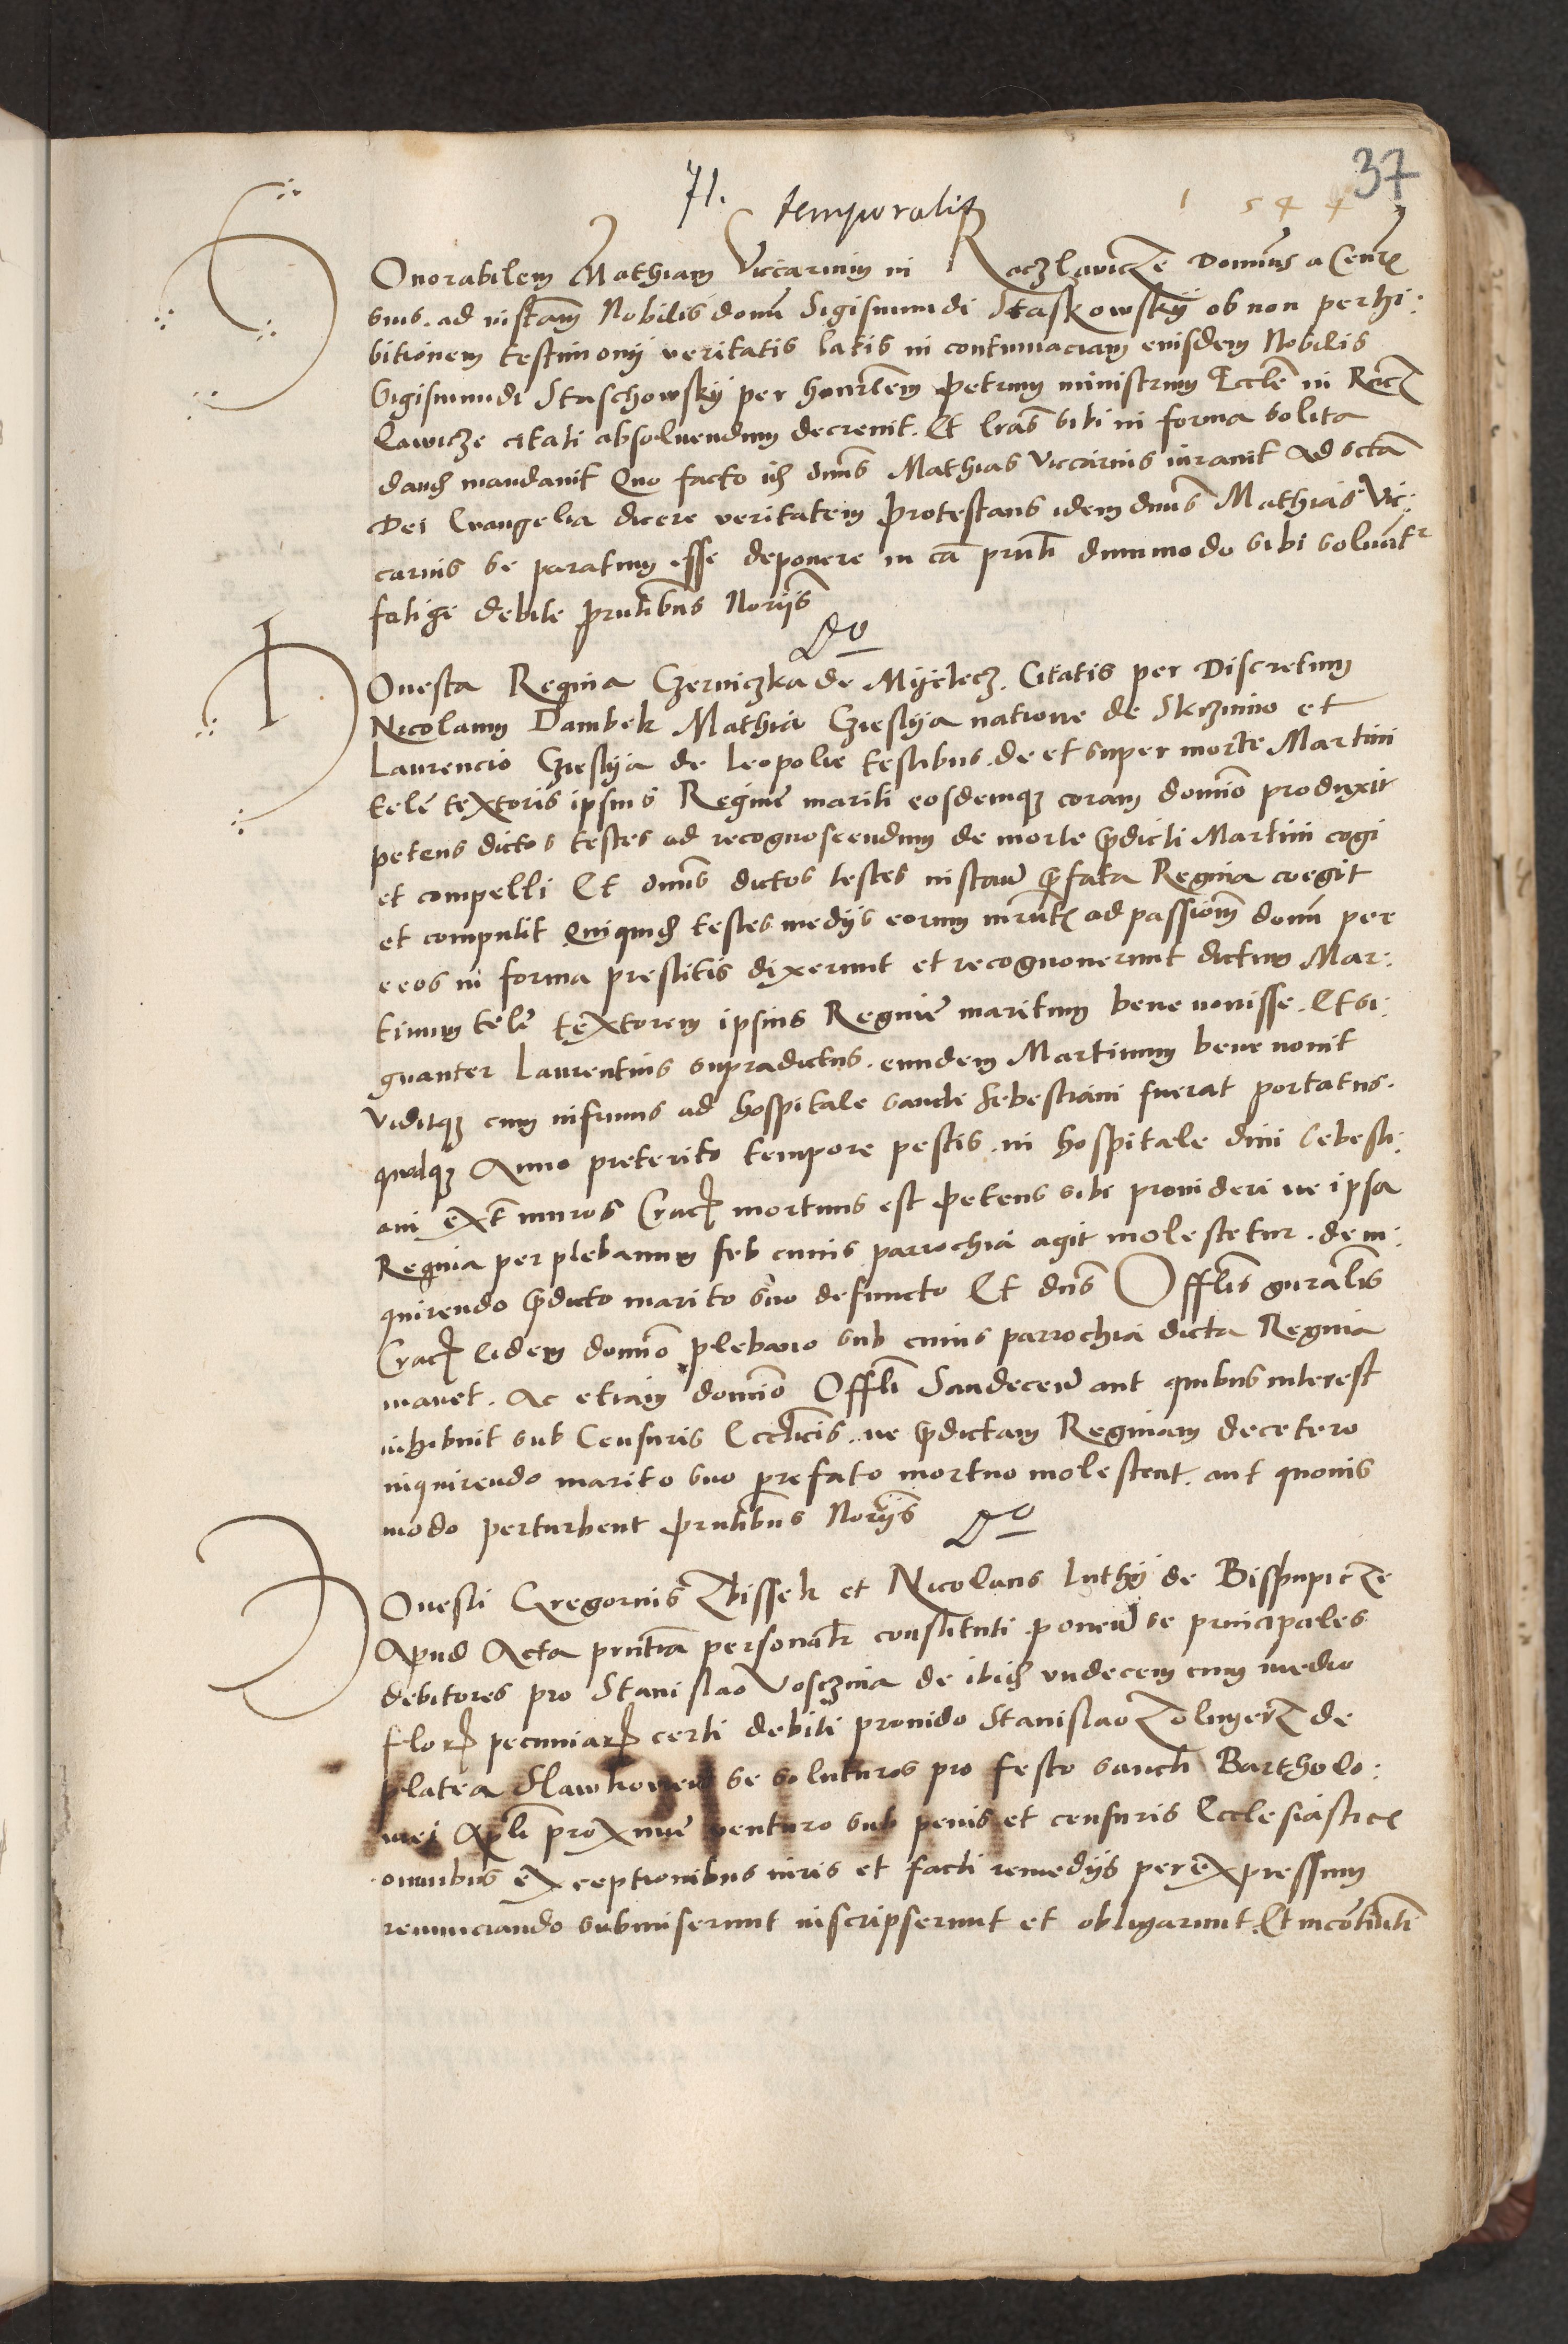 37
71. temporalis 1544
Honorabilem Mathiam Viccarium in Raczlawicze Dominus a Censuris
suis. ad instam Nobilis domi Sigismundi Staskowskÿ ob non perhi:
bitionem testimonij veritatis latis in contumaciam eiusdem Nobilis
Sigismundi Staschowskÿ per honrlem petrum ministrum Eccle in Racz
lawicze citati absoluendum decreuit. Et lras sibi in forma solita
dand mandauit Quo facto id dnus Mathias Viccarius iurauit ad scta
Dei Euangelia dicere veritatem protestans idem dnus Mathias Vic:
carius se paratum esse deponere in ca pnti dummodo sibi soluatr
fatige debite pntibus Norÿs
Do
Honesta Regina Czerniczka de Mÿslecz. Citatis per Discretum
Nicolaum Dambek Mathia Czieslÿa natione de Skrzinno et
Laurencio Czieslÿa de Leopolie testibus. de et super morte Martini
tele textoris ipsius Regine mariti eosdemqꝫ coram domino produxit
petens dictos testes ad recognoscendum de morte pdicti Martini cogi
et compelli Et dnus dictos testes instan pfata Regina coegit
et compulit Quiquid testes medÿs eorum iurntis ad passionem domi per
eeos in forma prestitis dixerunt et recognouerunt dictum Mar:
tinum tele textorem ipsius Regine maritum bene nouisse. Et si:
gnanter Laurentius supradictus. eundem Martinum bene nouit
viditqꝫ cum infirmus ad hospitale sancti Sebestiani fuerat portatus.
quodqꝫ Anno preterito tempore pestis. in hospitale diui Sebesti:
ani ext muros Crac mortuus est petens sibi prouideri ne ipsa
Regina per plebanum sub cuius parrochia agit molestetur. de in:
quirendo pdicto marito suo defuncto Et dns Offlis gnralis
Crac eidem domino plebano sub cuius parrochia dicta Regina
manet. Ac etiam domino Offli Sandecen aut quibus interest
inhibuit sub Censuris Ecclicis. ne pdictam Reginam decetero
inquirendo marito suo prefato mortuo molestent. aut quouis
modo perturbent pntibus Norÿs Do
Honesti Gregorius Zbissek et Nicolaus luthÿ de Bisspupicze
Apud Acta pntia personalr constituti ponen se principales
debitores pro Stanislao Vosczina de ibid vndecem cum medio
flor pecuniar certi debiti prouido Stanislao Zolnyerz de
platea Slawkowien se soluturos pro festo sancti Bartholo:
mei Apli proxime venturo sub penis et censuris Ecclesiasticis
omnibus exceptionibus iuris et facti remedÿs per expressum
renunciando submiserunt inscripserunt et obligarunt. Et incontinti